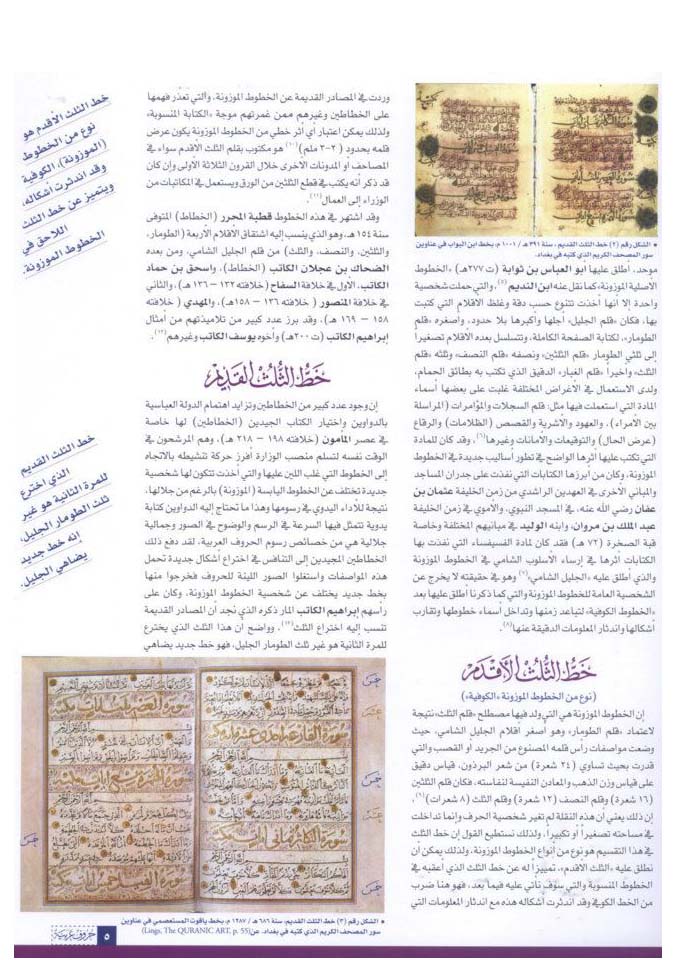 الشكل رقم (٢) خط الثلث القديم، سنة ٣٩١ هـ / ١٠٠١ م، بخط ابن البواب في عناوين
سور المصحف الكريم الذي كتبه في بغداد.
موحد، أطلق عليها ابو العباس بن ثوابة (ت ٢٧٧هـ)، «الخطوط
الأصلية الموزونة» كما نقل عنه ابن النديم (٥)، والتي حملت شخصية
واحدة إلا أنها أخذت تتنوع حسب دقة وغلظ الاقلام التي كتبت
بها، فكان «قلم الجليل» أجلها وأكبرها بلا حدود، وأصغره «قلم
الطومار»، لكتابة الصفحة الكاملة، وتتسلسل بعده الأقلام تصغيراً
إلى ثلثي الطومار «قلم الثلثين» ونصفه «قلم النصف» وثلثه «قلم
الثلث» وأخيراً «قلم الغبار» الدقيق الذي تكتب به بطائق الحمام،
ولدى الاستعمال في الأغراض المختلفة غلبت على بعضها أسماء
المادة التي استعملت فيها مثل: قلم السجلات والمؤامرات (المراسلة
بين الأمراء)، والعهود والأشرية والقصص (الظلامات) والرقاع
(عرض الحال) والتوقيعات والامانات وغيرها (٦)، وقد كان للمادة
التي تكتب عليها أثرها الواضح في تطور أساليب جديدة في الخطوط
الموزونة، وكان من أبرزها الكتابات التي نفذت على جدران المساجد
والمباني الاخرى في العهدين الراشدي من زمن الخليفة عثمان بن
عفان رضي الله عنه، في المسجد النبوي، والأموي في زمن الخليفة
عبد الملك بن مروان، وابنه الوليد في مبانيهم المختلفة وخاصة
قبة الصخرة (٧٢ هـ) فقد كان لمادة الفسيفساء التي نفذت بها
الكتابات أثرها في إرساء الأسلوب الشامي في الخطوط الموزونة
والذي أطلق عليه «الجليل الشامي» (٧) وهو في حقيقته لا يخرج عن
الشخصية العامة للخطوط الموزونة والتي كما ذكرنا اطلق عليها بعد
«الخطوط الكوفية»، لتباعد زمنها وتداخل أسماء خطوطها وتقارب
أشكالها واندثار المعلومات الدقيقة عنها (٨).
خط الثلث الأقدم
(نوع من الخطوط الموزونة «الكوفية»)
إن الخطوط الموزونة هي التي ولد فيها مصطلح «قلم الثلث» نتيجة
لاعتماد «قلم الطومار» وهو أصغر اقلام الجليل الشامي، حيث
وضعت مواصفات رأس قلمه المصنوع من الجريد أو القصب والتي
قدرت بحيث تساوي (٢٤ شعرة) من شعر البرذون، قياس دقيق
على قياس وزن الذهب والمعادن النفيسة لنفاسته، فكان قلم الثلثين
(١٦ شعرة) وقلم النصف (١٢ شعرة) وقلم الثلث (٨ شعرات) (٩)،
إن ذلك يعني أن هذه النقلة لم تغير شخصية الحرف وانما تداخلت
في مساحته تصغيراً أو تكبيراً، ولذلك نستطيع القول إن خط الثلث
في هذا التقسيم هو نوع من أنواع الخطوط الموزونة، ولذلك يمكن أن
نطلق عليه «الثلث الأقدم»، تمييزاً له عن خط الثلث الذي أعقبه في
الخطوط المنسوبة والتي سوف نأتي عليه فيما بعد، فهو هنا ضرب
من الخط الكوفي وقد اندثرت أشكاله هذه مع اندثار المعلومات التي
وردت في المصادر القديمة عن الخطوط الموزونة، والتي تعذر فهمها
على الخطاطين وغيرهم ممن غمرتهم موجة «الكتابة المنسوبة»،
ولذلك يمكن اعتبار أي أثر خطي من الخطوط الموزونة يكون عرض
قلمه بحدود (٢-٣ ملم) (١٠) هو مكتوب بقلم الثلث الاقدم سواء في
المصاحف أو المدونات الاخرى خلال القرون الثلاثة الاولى وإن كان
قد ذكر أنه يكتب في قطع الثلثين من الورق ويستعمل في المكاتبات من
الوزراء إلى العمال (١١).
وقد اشتهر في هذه الخطوط قطبة المحرر (الخطاط) المتوفى
سنة ١٥٤ هـ، وهو الذي ينسب إليه اشتقاق الاقلام الأربعة (الطومار،
والثلثين، والنصف، والثلث) من قلم الجليل الشامي، ومن بعده
الضحاك بن عجلان الكاتب (الخطاط)، واسحق بن حماد
الكاتب، الاول في خلافة السفاح (خلافته ١٣٢ – ١٣٦هـ)، والثاني
في خلافة المنصور (خلافته ١٣٦ – ١٥٨هـ)، والمهدي (خلافته
١٥٨ – ١٦٩ هـ)، وقد برز عدد كبير من تلاميذتهم من أمثال
إبراهيم الكاتب (ت ٢٠٠هـ) وأخوه يوسف الكاتب وغيرهم (١٢).
خط الثلث القديم
إن وجود عدد كبير من الخطاطين وتزايد اهتمام الدولة العباسية
بالدواوين واختيار الكتاب الجيدين (الخطاطين) لها خاصة
في عصر المأمون (خلافته ١٩٨ – ٢١٨ هـ)، وهم المرشحون في
الوقت نفسه لتسلم منصب الوزارة أفرز حركة تنشيطه بالاتجاه
إلى الخطوط التي غلب اللين عليها والتي أخذت تتكون لها شخصية
جديدة تختلف عن الخطوط اليابسة (الموزونة) بالرغم من جلالها،
نتيجة للأداء اليدوي في رسومها وهذا ما تحتاج إليه الدواوين كتابة
يدوية تتمثل فيها السرعة في الرسم والوضوح في الصور وجمالية
جلالية هي من خصائص رسوم الحروف العربية، لقد دفع ذلك
الخطاطين المجيدين إلى التنافس في اختراع أشكال جديدة تحمل
هذه المواصفات واستغلوا الصور اللينة للحروف فخرجوا منها
بخط جديد يختلف عن شخصية الخطوط الموزونة، وكان على
رأسهم إبراهيم الكاتب المار ذكره الذي نجد أن المصادر القديمة
تنسب إليه اختراع الثلث (١٣)، وواضح أن هذا الثلث الذي يخترع
للمرة الثانية هو غير ثلث الطومار الجليل، فهو خط جديد يضاهي
خط الثلث الأقدم هو
نوع من الخطوط
(الموزونة)، الكوفية
وقد اندثرت أشكاله،
ويتميز عن خط الثلث
اللاحق في
الخطوط الموزونة.
خط الثلث القديم
الذي اخترع
للمرة الثانية هو غير
ثلث الطومار الجليل،
إنه خط جديد
يضاهي الجليل.
الشكل رقم (٣) خط الثلث القديم، سنة ٦٨٦ هـ / ١٢٨٧ م، بخط ياقوت المستعصمي في عناوين
سور المصحف الكريم الذي كتبه في بغداد. عن (Lings, The QURANIC ART, p. 55)
٥ حروف عربية